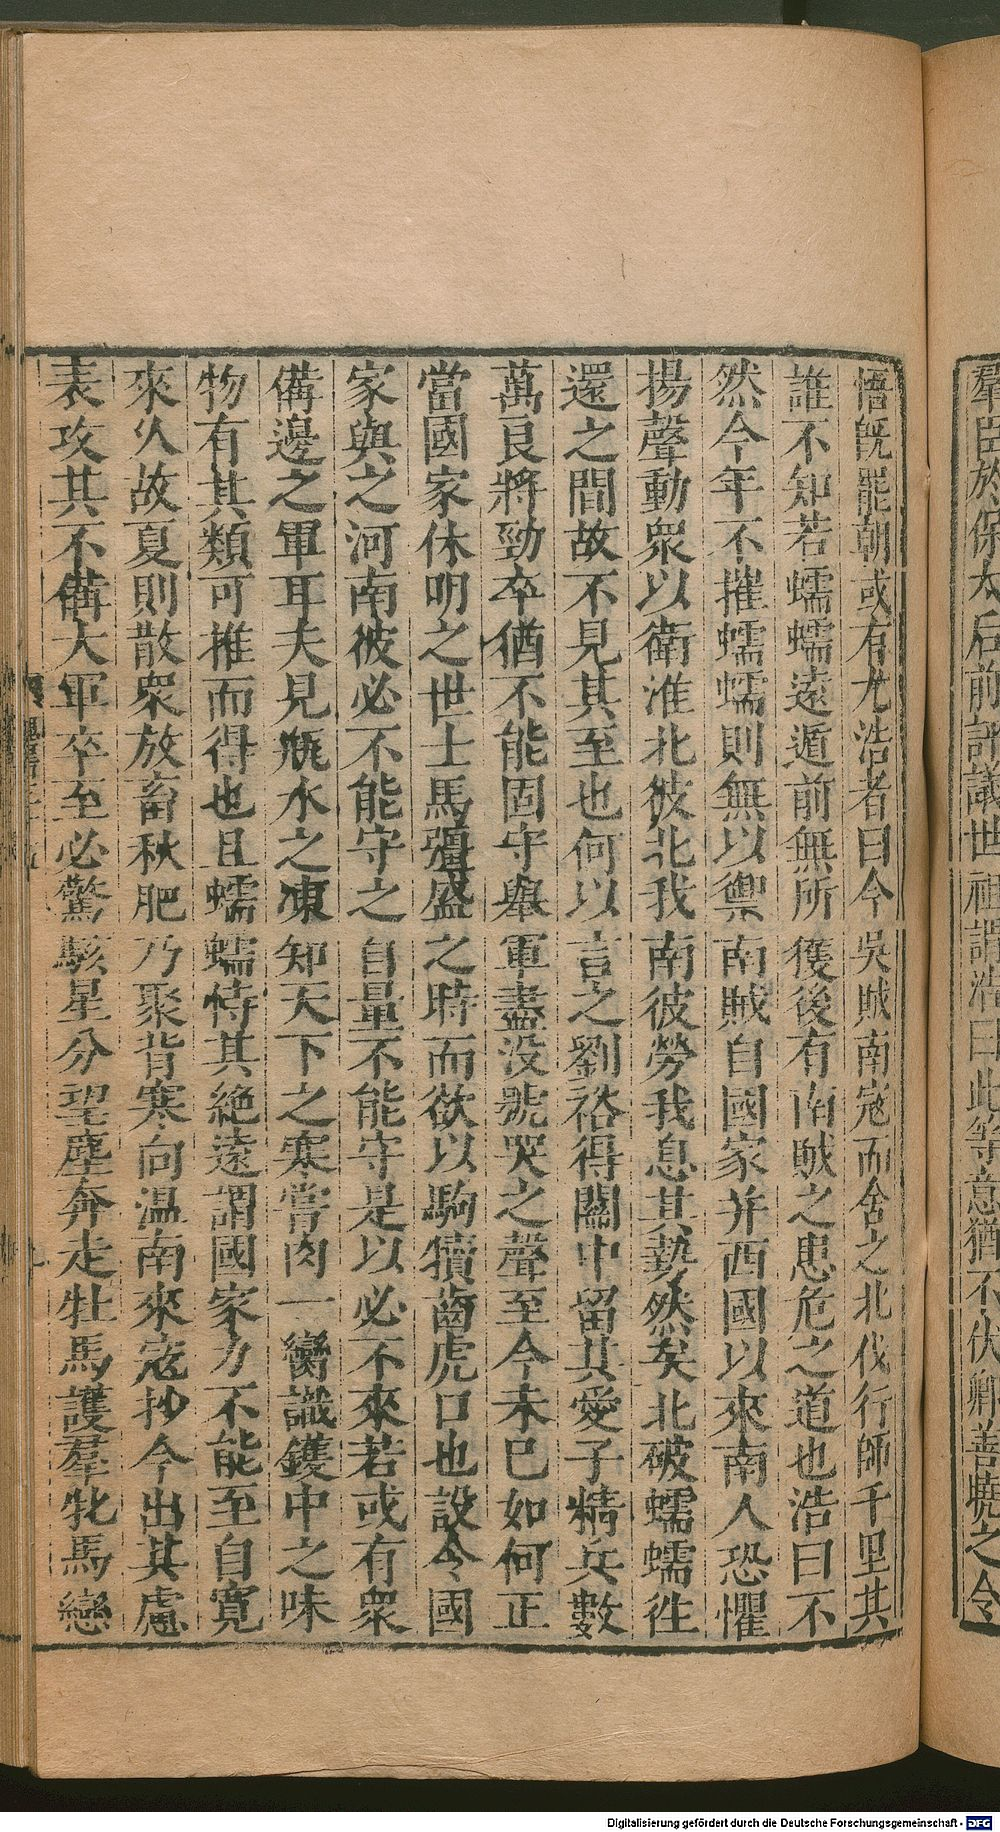 羣臣於保太后前評議世祖謂浩曰此等意猶不伏卿善曉之令
悟旣罷朝或有尤浩者曰今吳賊南寇而舍之北伐行師千里其
誰不知若蠕蠕遠遁前無所獲後有南賊之患危之道也浩曰不
然今年不摧蠕蠕則無以禦南賊自國家并西國以來南人恐懼
揚聲動衆以衛淮北彼北我南彼勞我息其勢然矣北破蠕蠕徃
還之間故不見其至也何以言之劉裕得關中留其愛子精兵數
萬良將勁卒猶不能固守舉軍盡没號哭之聲至今未已如何正
當國家休明之世士馬彊盛之時而欲以駒犢齒虎口也設令國
家與之河南彼必不能守之自量不能守是以必不來若或有衆
備邊之軍耳夫見瓶水之凍知天下之寒嘗肉一臠識鑊中之味
物有其類可推而得也且蠕蠕恃其絶遠謂國家力不能至自寛
來乆故夏則散衆放畜秋肥乃聚背寒向温南來寇抄今出其慮
表攻其不備大軍卒至必驚駭星分望塵奔走牡馬護羣牝馬戀
Digitalisierung gefördert durch die Deutsche Forschungsgemeinschaft - DFG